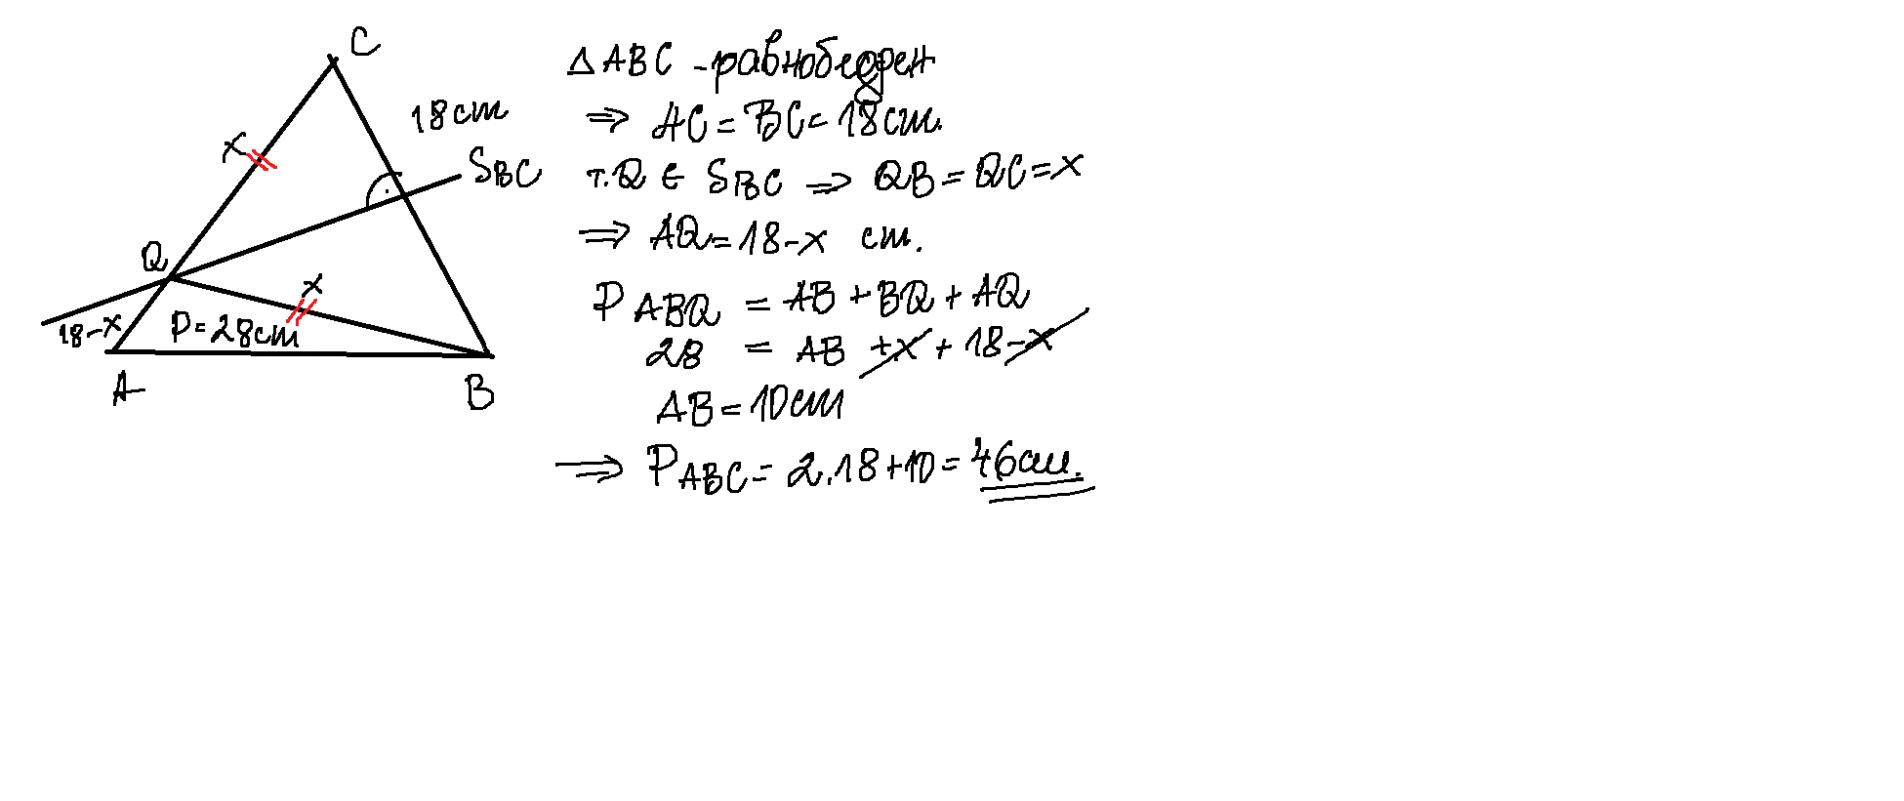 C
18cm
x
S_BC
Q
x
18-x
P=28cm
A
B
△ABC - равнобедрен
⇒ AC = BC = 18cm.
т.Q ∈ S_BC ⇒ QB = QC = x
⇒ AQ = 18-x cm.
P_ABQ = AB + BQ + AQ
28 = AB + x + 18 - x
AB = 10cm
⇒ P_ABC = 2.18+10 = 46cm.